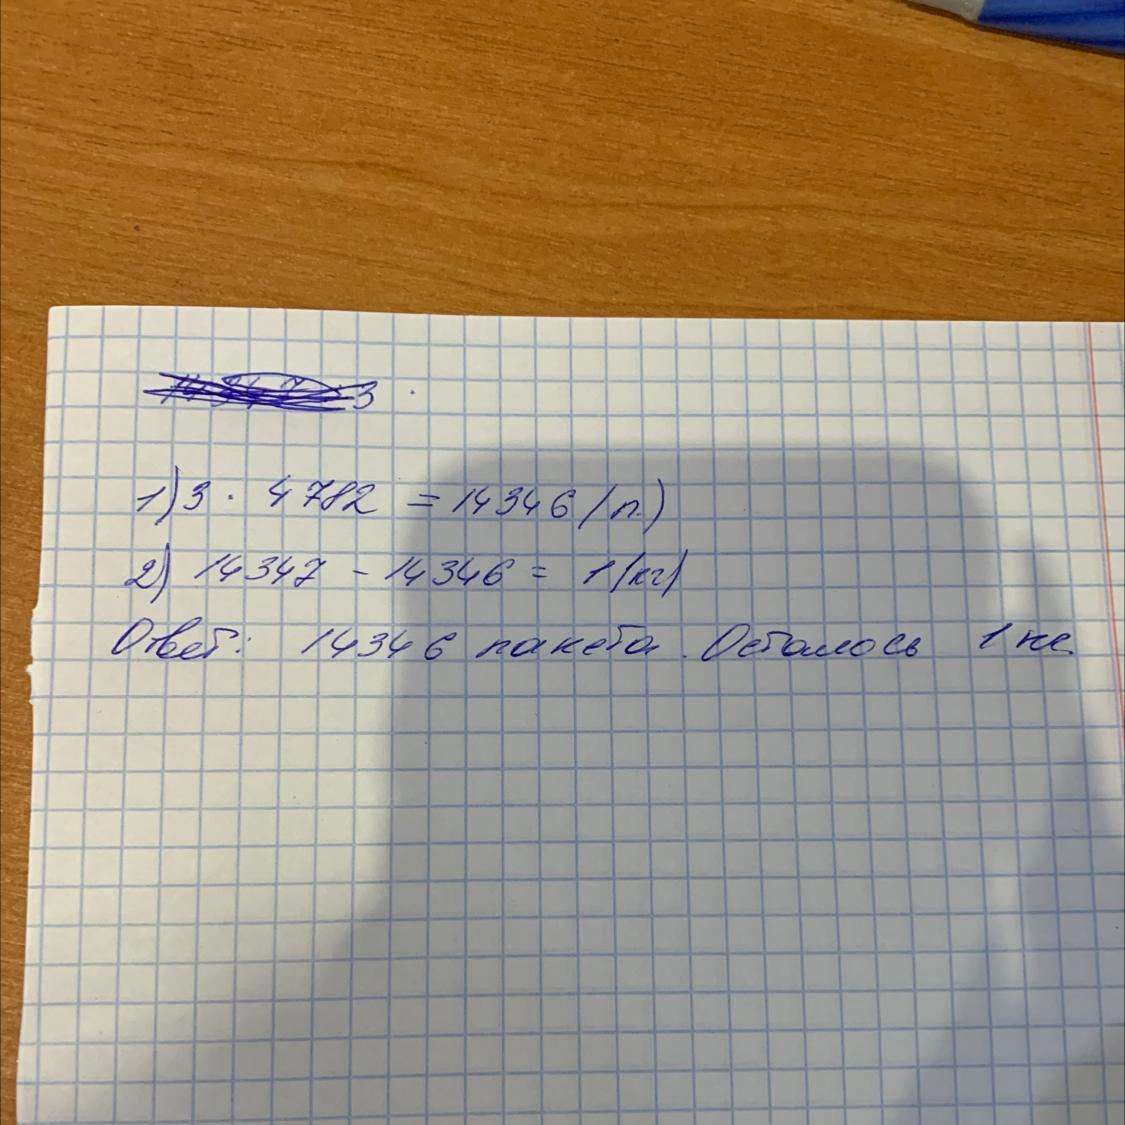 3
1) 3 · 4782 = 14346 (п.)
2) 14347 - 14346 = 1 (кг)
Ответ: 14346 пакета. Осталось 1 кг.